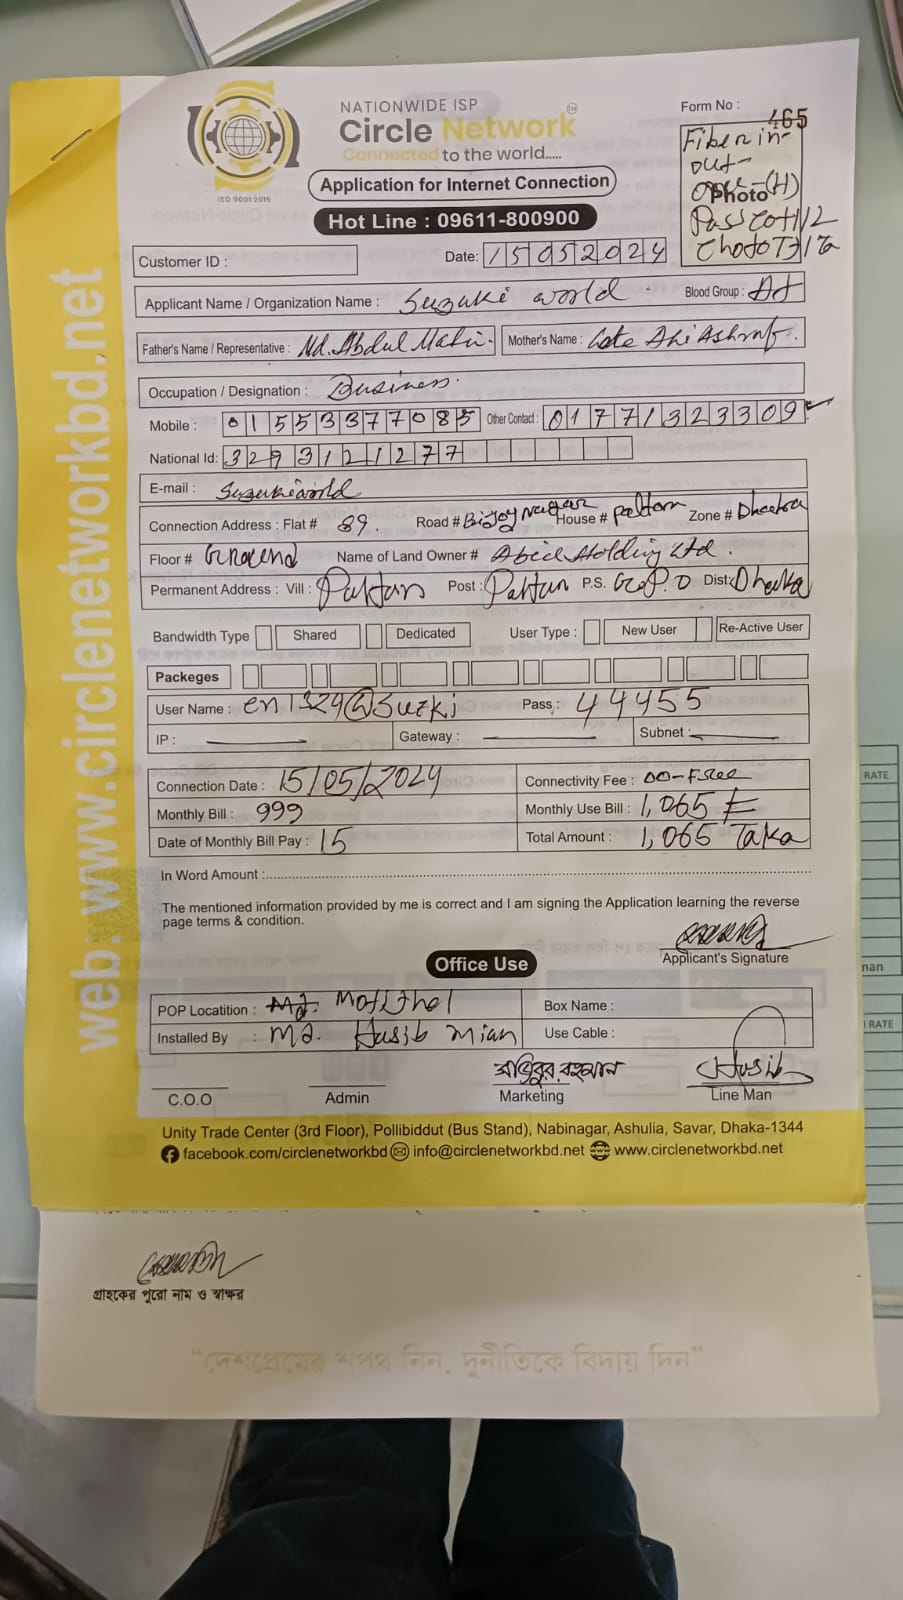 NATIONWIDE ISP
Circle Network
Connected to the world.....
ISO 9001:2015
Form No : 465
Fiber in-
out-
Photo (H)
Application for Internet Connection
Hot Line : 09611-800900
Customer ID :
Date: 15052024
Applicant Name / Organization Name : Suzuki world
Blood Group :
Father's Name / Representative : Md. Abdul Matin
Mother's Name : Late
Occupation / Designation : Business.
Mobile : 01553377085 Other Contact : 01771323309
National Id: 3293121277
E-mail : Suzukiworld
Connection Address : Flat # 89. Road # Bijoynagar House # paltan Zone # Dhaka
Floor # Ground Name of Land Owner # Abid Holding Ltd.
Permanent Address : Vill : Paltan Post : Paltan P.S. G.P.O Dist: Dhaka
Bandwidth Type Shared Dedicated User Type : New User Re-Active User
Packeges
User Name : cn1324@Suzki Pass : 44455
IP : Gateway : Subnet :
Connection Date : 15/05/2024 Connectivity Fee : 00-Free
Monthly Bill : 999 Monthly Use Bill : 1,065
Date of Monthly Bill Pay : 15 Total Amount : 1,065 Taka
In Word Amount :
The mentioned information provided by me is correct and I am signing the Application learning the reverse
page terms & condition.
Applicant's Signature
Office Use
POP Locatition : Motijhel Box Name :
Installed By : Md. Hasib Mian Use Cable :
Hasib
C.O.O Admin Marketing Line Man
Unity Trade Center (3rd Floor), Pollibiddut (Bus Stand), Nabinagar, Ashulia, Savar, Dhaka-1344
facebook.com/circlenetworkbd info@circlenetworkbd.net www.circlenetworkbd.net
web: www.circlenetworkbd.net
গ্রাহকের পুরো নাম ও স্বাক্ষর
"দেশপ্রেমের শপথ নিন, দুর্নীতিকে বিদায় দিন"
RATE
RATE